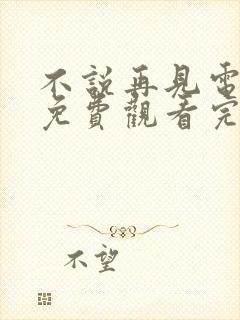 不說再見電
免費觀看完
不望